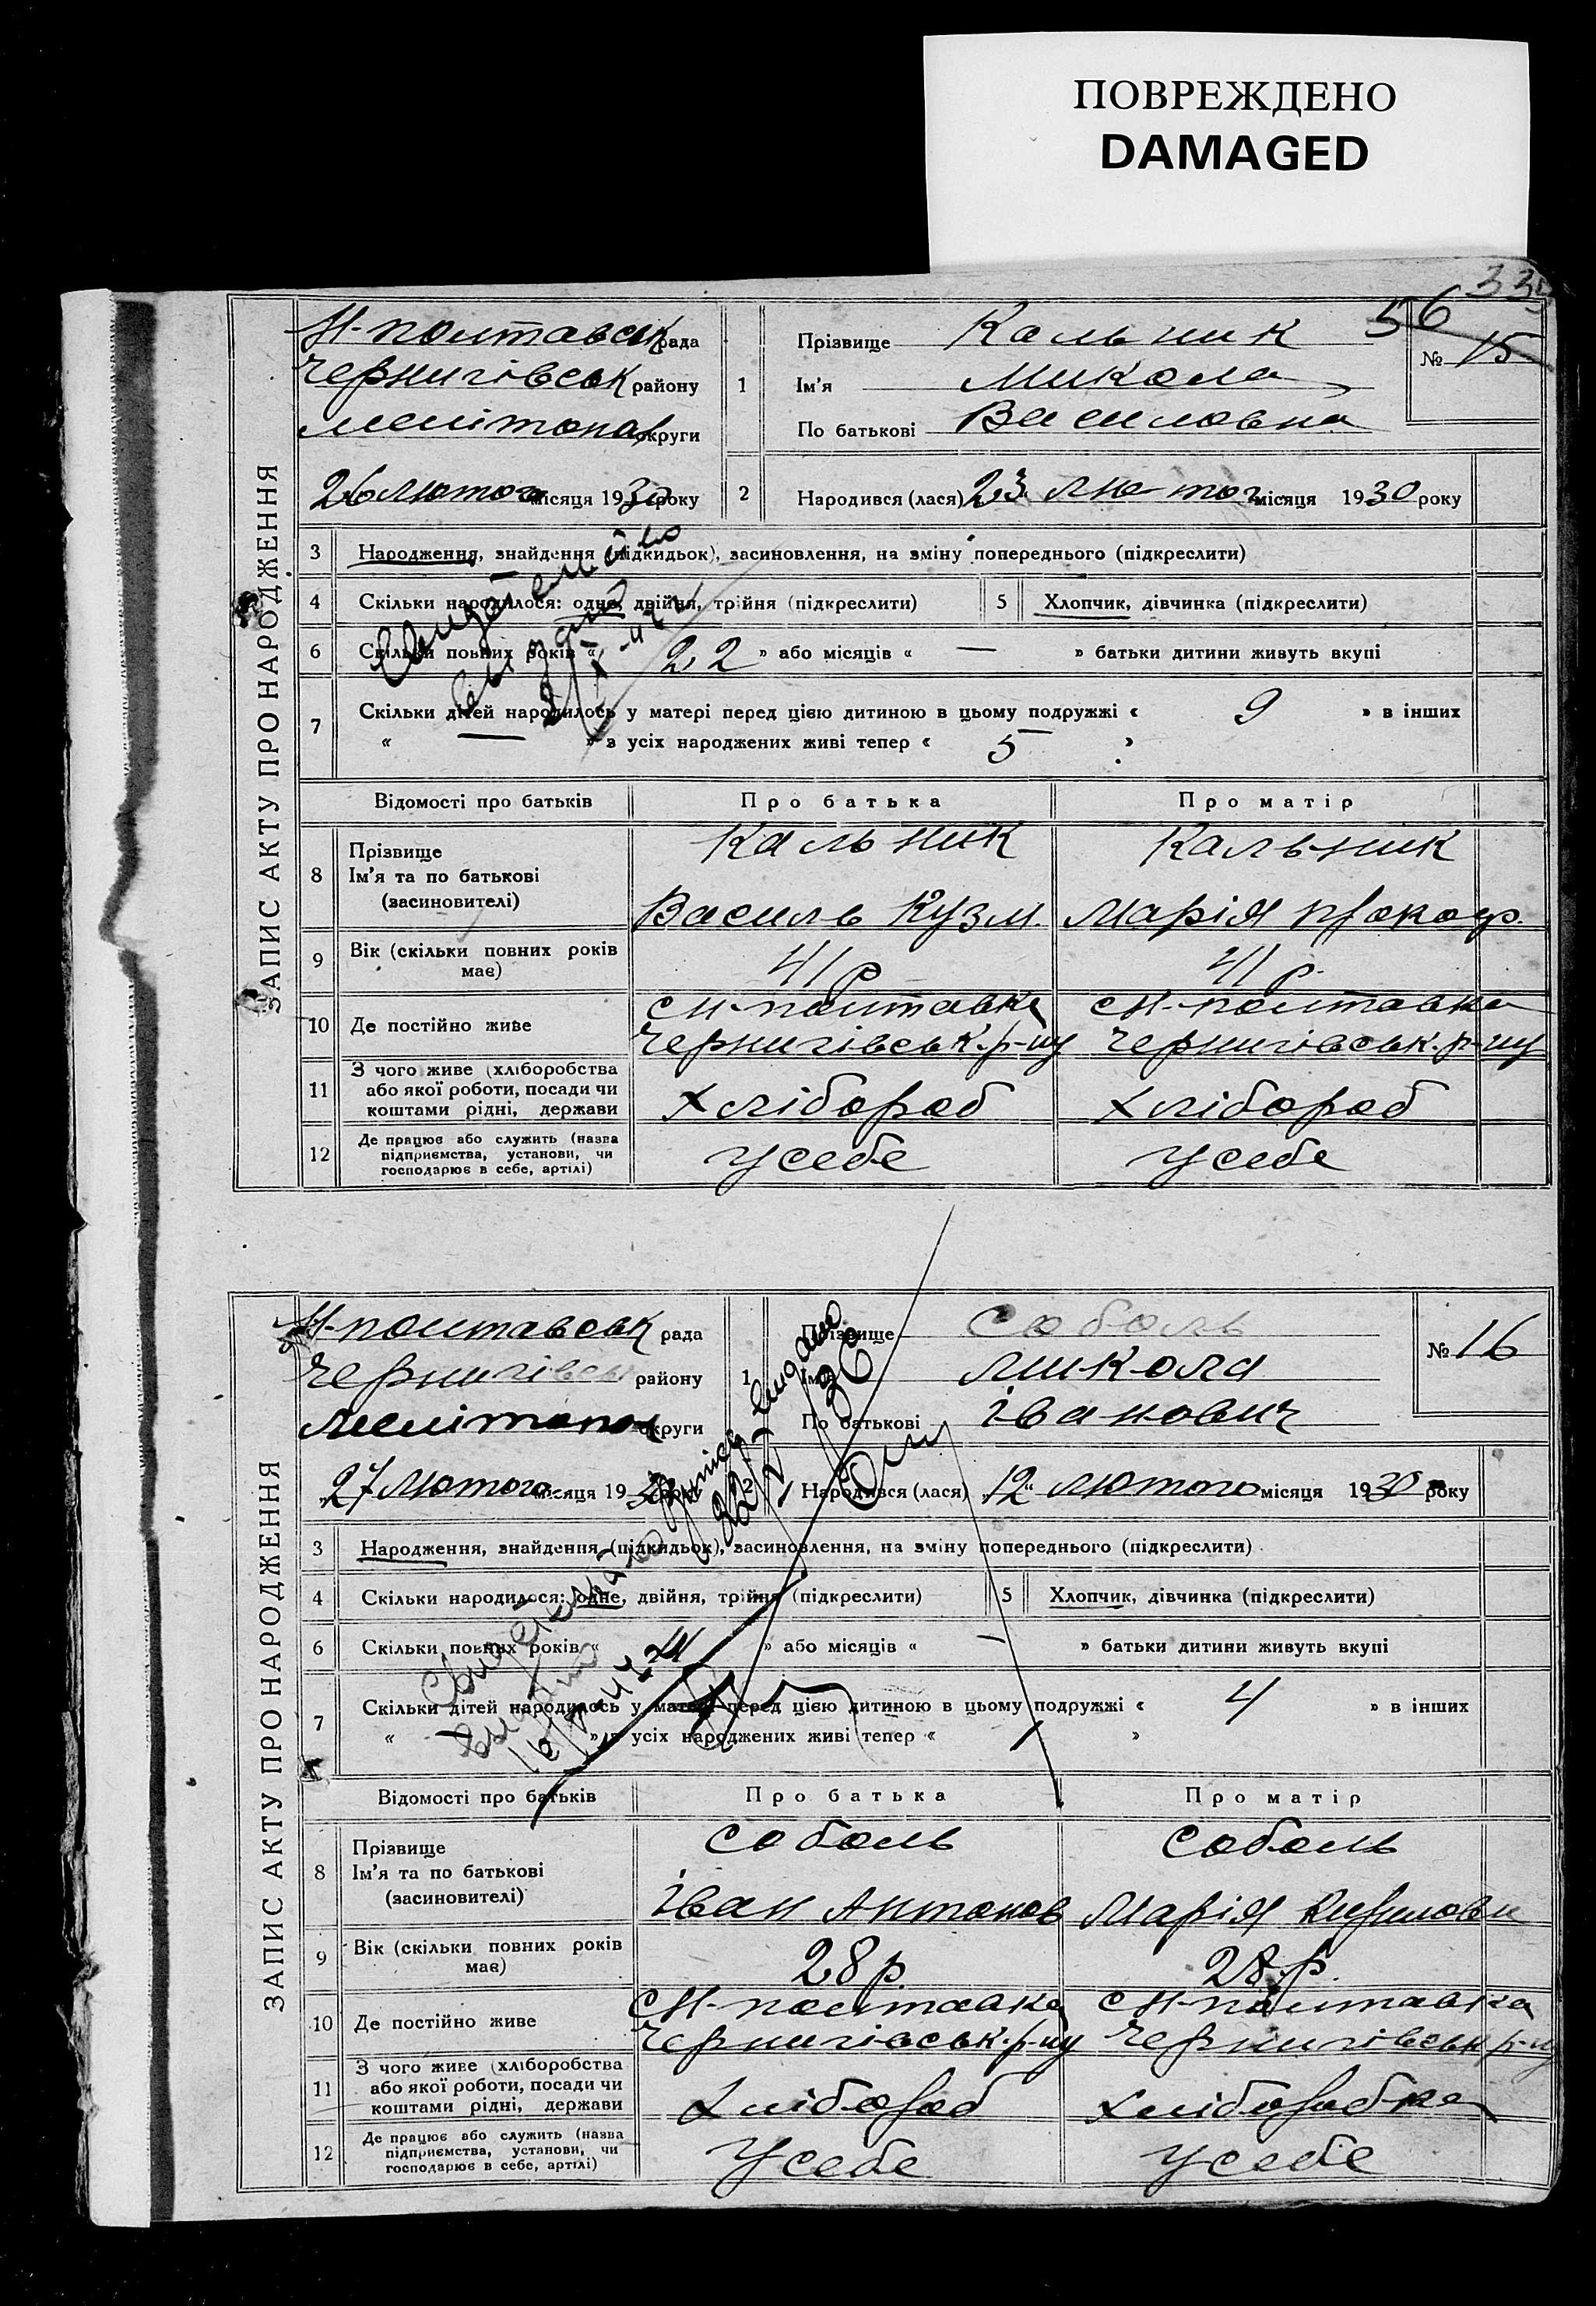 ПОВРЕЖДЕНО
DAMAGED
335
56
ЗАПИС АКТУ ПРО НАРОДЖЕННЯ
Н-полтавськ рада
Чернигівськ району
мелітопол округи
26 лютого місяця 1930 року
1
Прізвище Кальник
Ім'я Микола
По батькові Василовна
№ 15
2
Народився (лася) 23 лютог місяця 1930 року
3 Народження, знайдення (підкидьок), засиновлення, на зміну попереднього (підкреслити)
4 Скільки народилося: одне, двійня, трійня (підкреслити) 5 Хлопчик, дівчинка (підкреслити)
6 Скільки повних років « 22 » або місяців « — » батьки дитини живуть вкупі
7 Скільки дітей народилось у матері перед цією дитиною в цьому подружжі « 9 » в інших
« — » з усіх народжених живі тепер « 5 »
Відомості про батьків Про батька Про матір
8 Прізвище Кальник Кальник
Ім'я та по батькові
(засиновителі) Василь Кузм. Марія Прокоф.
9 Вік (скільки повних років має) 41 р 41 р.
10 Де постійно живе с Н-полтавка с Н-полтавка
Чернигівськ. р-ну Чернигівськ. р-ну
11 З чого живе (хліборобства
або якої роботи, посади чи
коштами рідні, держави Хлібороб Хлібороб
12 Де працює або служить (назва
підприємства, установи, чи
господарює в себе, артілі) У себе У себе
ЗАПИС АКТУ ПРО НАРОДЖЕННЯ
Н-полтавськ рада
Чернигівськ району
Мелітопол округи
27 лютого місяця 1930 року
1
Прізвище Соболь
Ім'я Микола
По батькові Іванович
№ 16
2
Народився (лася) „12“ лютого місяця 1930 року
3 Народження, знайдення (підкидьок), засиновлення, на зміну попереднього (підкреслити)
4 Скільки народилося: одне, двійня, трійня (підкреслити) 5 Хлопчик, дівчинка (підкреслити)
6 Скільки повних років « » або місяців « — » батьки дитини живуть вкупі
7 Скільки дітей народилось у матері перед цією дитиною в цьому подружжі « 4 » в інших
« — » з усіх народжених живі тепер « 1 »
Відомості про батьків Про батька Про матір
8 Прізвище Соболь Соболь
Ім'я та по батькові
(засиновителі) Іван Антонов Марія Кириловн
9 Вік (скільки повних років має) 28 р. 28 р.
10 Де постійно живе с Н-полтавка с Н-полтавка
Чернигівськ. р-ну Чернигівськ р-ну
11 З чого живе (хліборобства
або якої роботи, посади чи
коштами рідні, держави Хлібороб Хліборобка
12 Де працює або служить (назва
підприємства, установи, чи
господарює в себе, артілі) У себе У себе